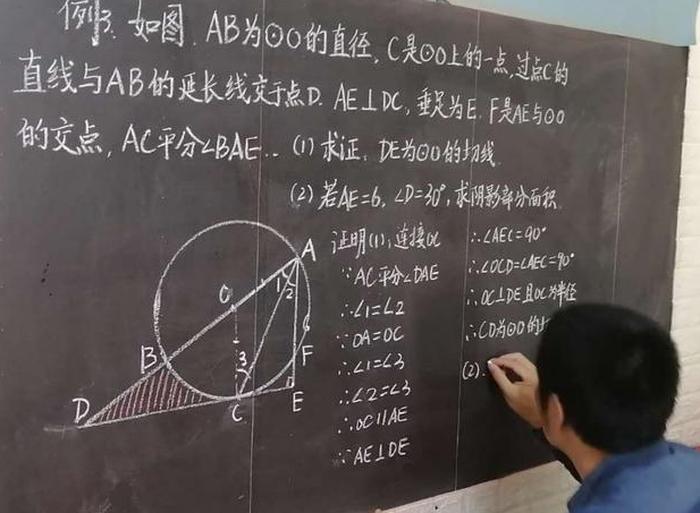 例3. 如图. AB为⊙O的直径, C是⊙O上的一点, 过点C的
直线与AB的延长线交于点D. AE⊥DC, 垂足为E. F是AE与⊙O
的交点, AC平分∠BAE.. (1) 求证: DE为⊙O的切线
(2) 若AE=6, ∠D=30°, 求阴影部分面积
证明(1): 连接OC
∵AC平分∠DAE
∴∠1=∠2
∵OA=OC
∴∠1=∠3
∴∠2=∠3
∴OC∥AE
∵AE⊥DE
∴∠AEC=90°
∴∠OCD=∠AEC=90°
∴OC⊥DE且OC为半径
∴CD为⊙O的
(2).
A
1
2
O
B
3
F
D
C
E